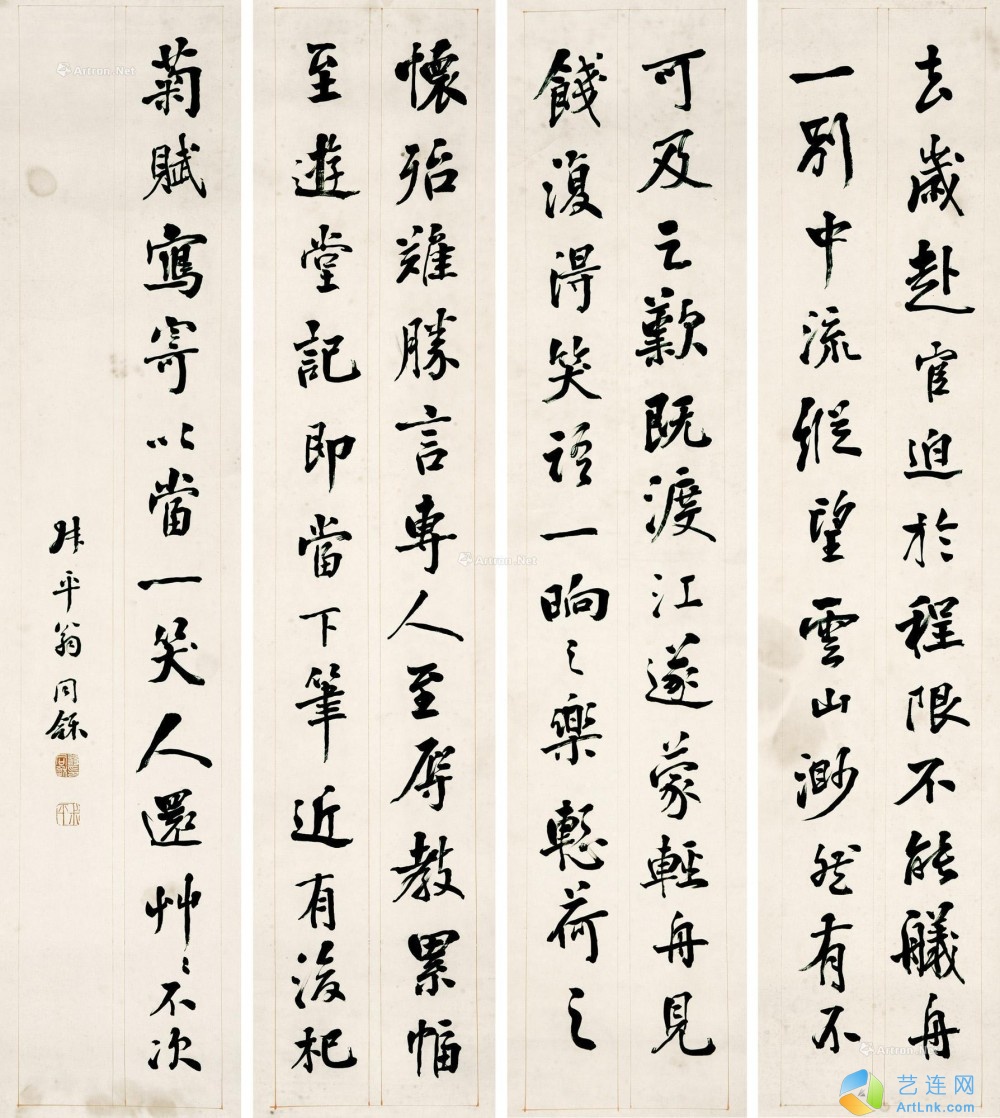 去歲赴官迫於程限不能艤舟
一別中流縱望雲山渺然有不
可及之歎既渡江遂蒙輕舟見
餞復得笑語一晌之樂慙荷之
懷殆難勝言專人至辱教累幅
至遊堂記即當下筆近有後杞
菊賦寫寄以當一笑人還草草不次
叔平翁同龢
Artron.Net
Artron.Net
Artron.Net
艺连网
ArtLnk.com